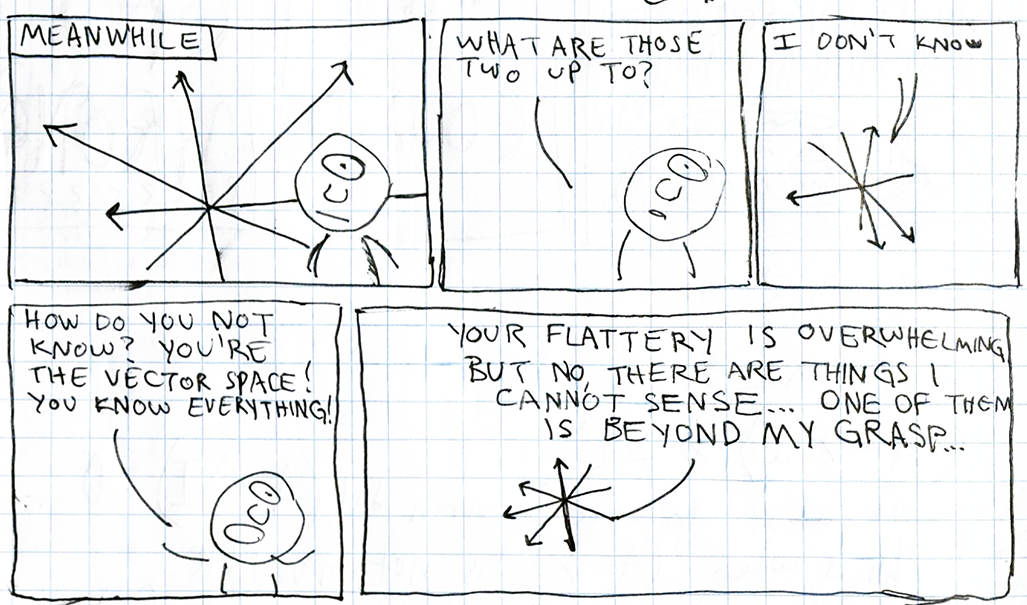 MEANWHILE
WHAT ARE THOSE
TWO UP TO?
I DON'T KNOW
HOW DO YOU NOT
KNOW? YOU'RE
THE VECTOR SPACE!
YOU KNOW EVERYTHING!
YOUR FLATTERY IS OVERWHELMING
BUT NO, THERE ARE THINGS I
CANNOT SENSE... ONE OF THEM
IS BEYOND MY GRASP...